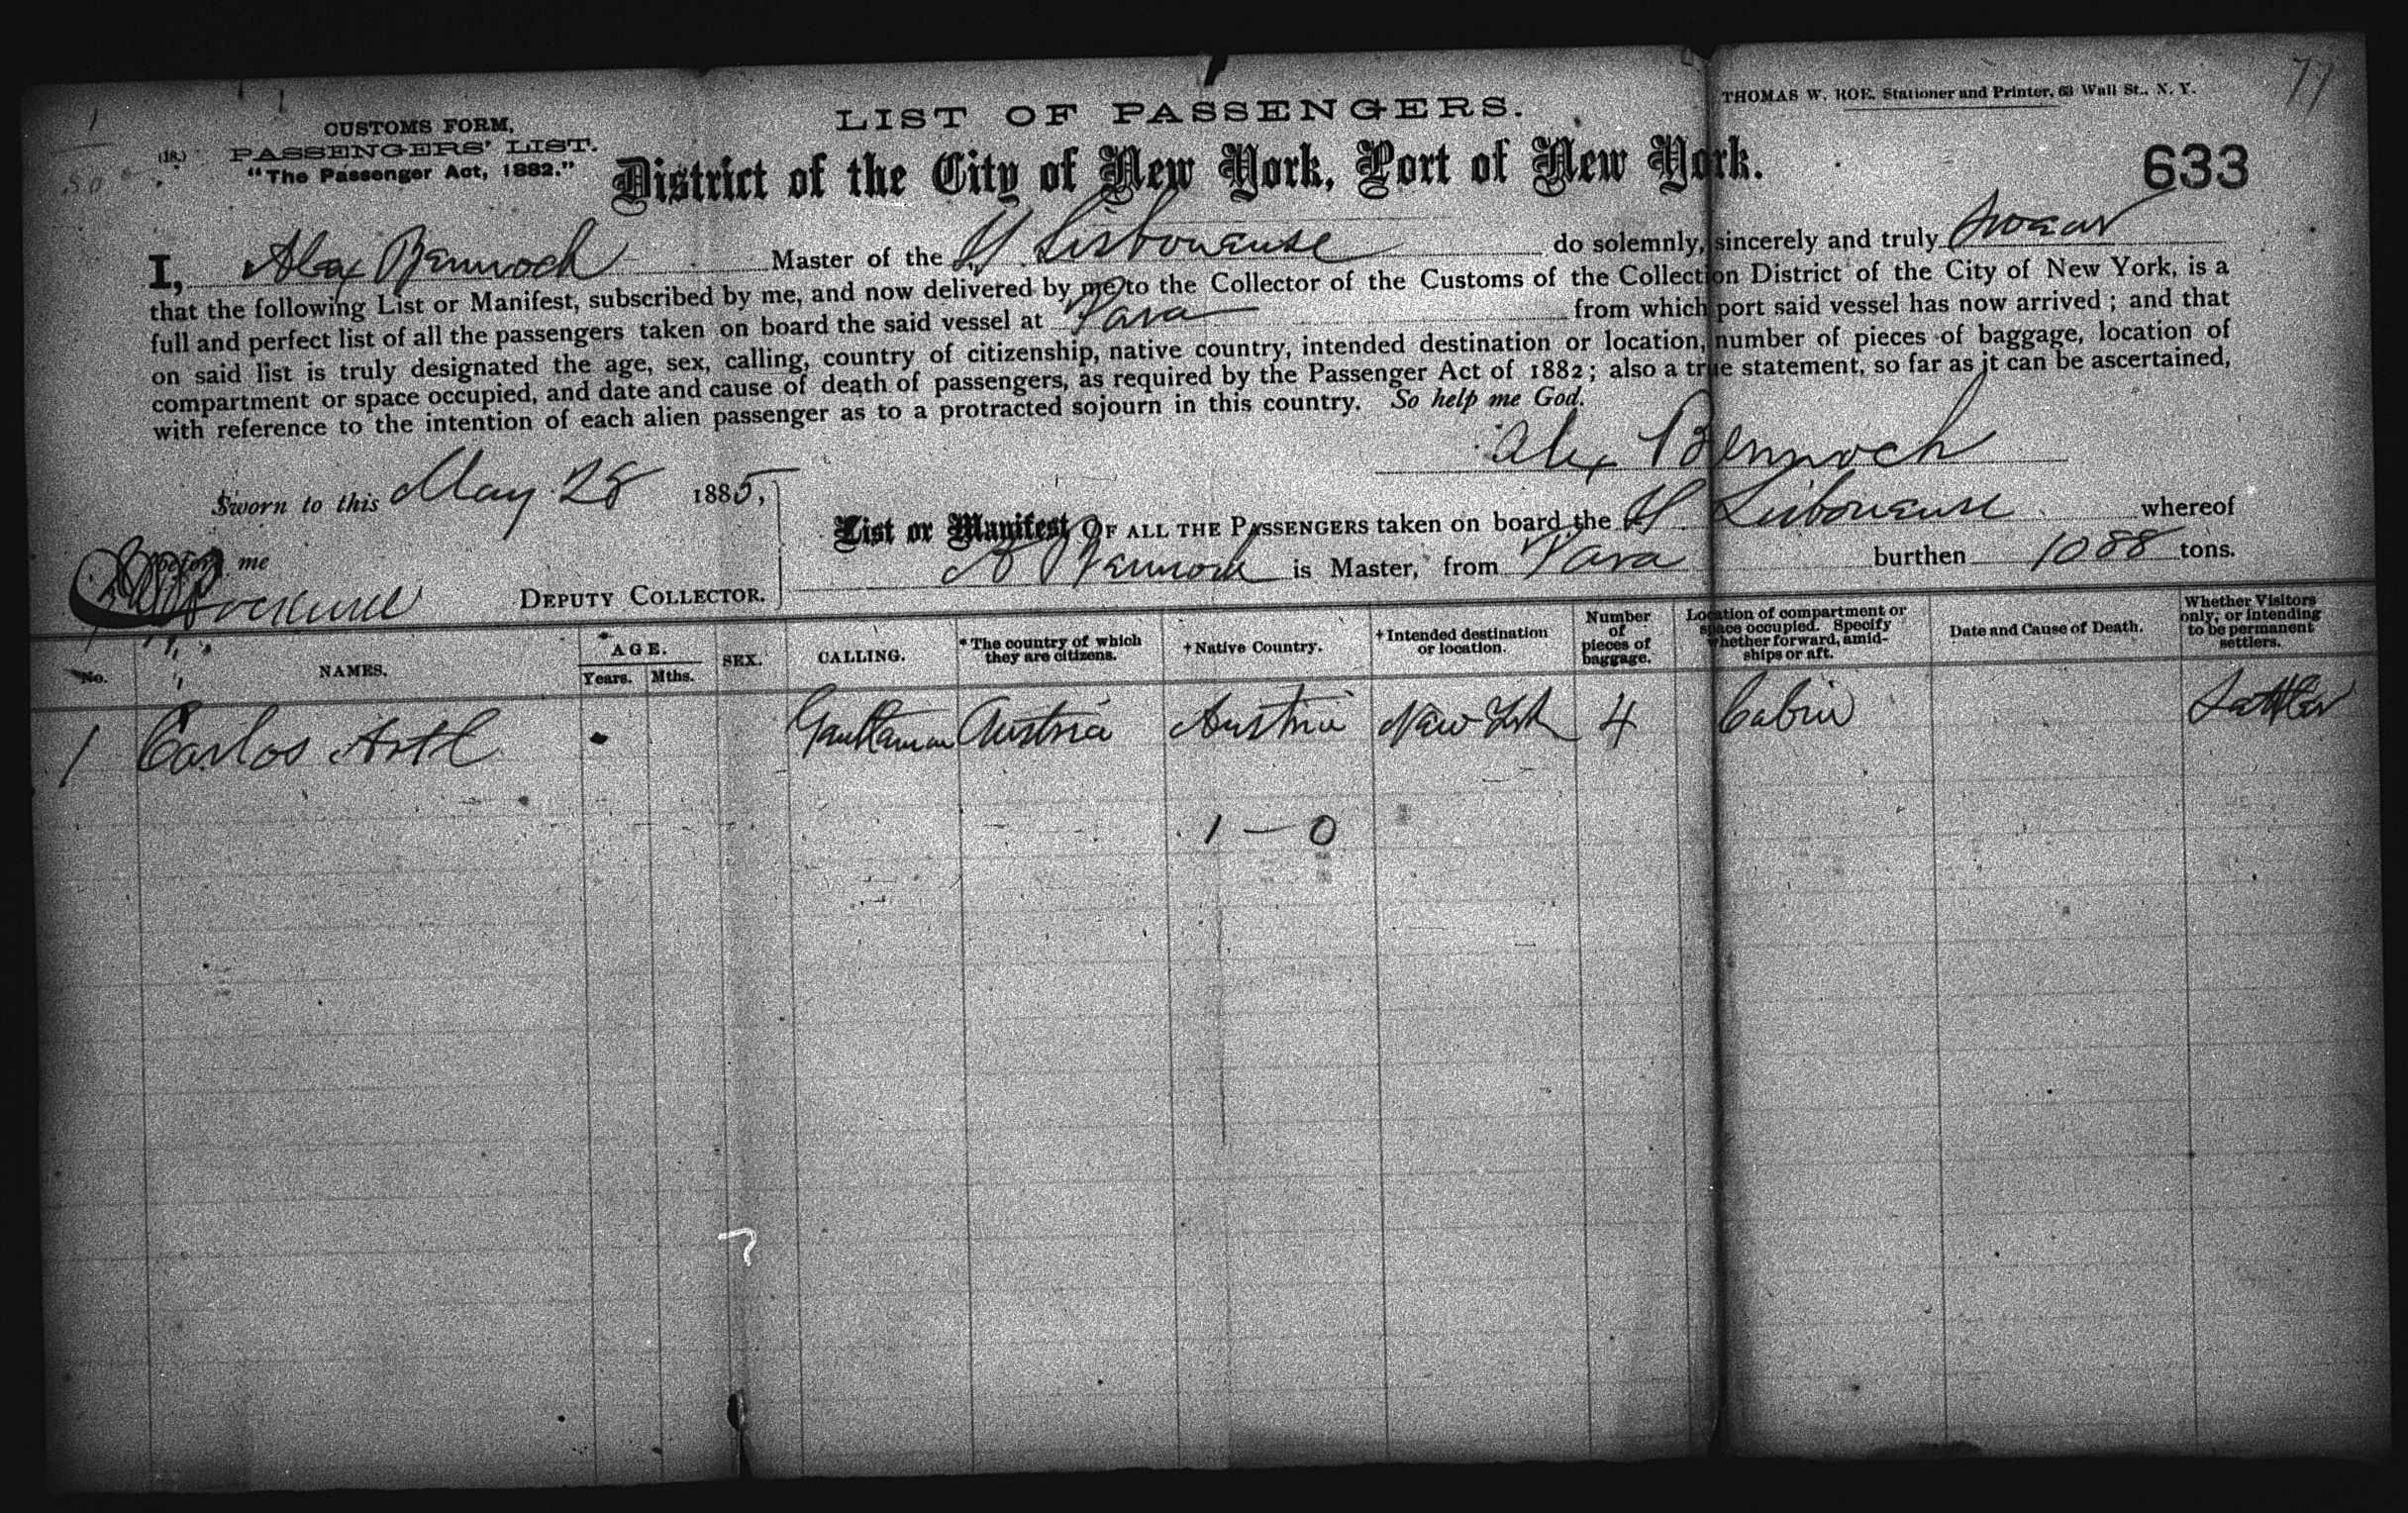 1
77
CUSTOMS FORM,
(18.) PASSENGERS' LIST.
"The Passenger Act, 1882."
LIST OF PASSENGERS.
THOMAS W. ROE, Stationer and Printer, 63 Wall St., N. Y.
District of the City of New York, Port of New York.
633
I, Alex Bennoch Master of the Lisbonense do solemnly, sincerely and truly swear
that the following List or Manifest, subscribed by me, and now delivered by me to the Collector of the Customs of the Collection District of the City of New York, is a
full and perfect list of all the passengers taken on board the said vessel at Para from which port said vessel has now arrived; and that
on said list is truly designated the age, sex, calling, country of citizenship, native country, intended destination or location, number of pieces of baggage, location of
compartment or space occupied, and date and cause of death of passengers, as required by the Passenger Act of 1882; also a true statement, so far as it can be ascertained,
with reference to the intention of each alien passenger as to a protracted sojourn in this country. So help me God.
Alex Bennoch
Sworn to this May 28 1885,
before me
DEPUTY COLLECTOR.
List or Manifest OF ALL THE PASSENGERS taken on board the Lisbonense whereof
A Bennoch is Master, from Para burthen 1088 tons.
No. NAMES. AGE. Years. Mths. SEX. CALLING. *The country of which they are citizens. †Native Country. †Intended destination or location. Number of pieces of baggage. Location of compartment or space occupied. Specify whether forward, amidships or aft. Date and Cause of Death. Whether Visitors only, or intending to be permanent settlers.
1 Carlos Artl Gentleman Austria Austria New York 4 Cabin Settler
1 — 0